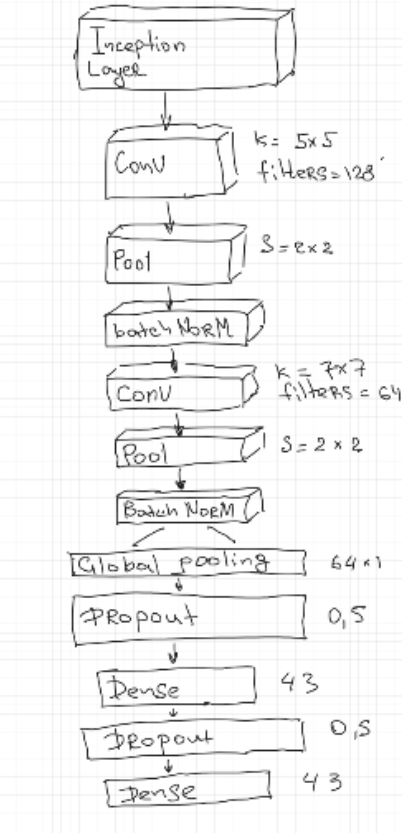 Inception
Layer
Conv
K = 5x5
filters = 128
Pool
S = 2x2
batch NORM
Conv
K = 7x7
filters = 64
Pool
S = 2 x 2
Batch NORM
Global pooling
64x1
Dropout
0,5
Dense
43
Dropout
0,5
Dense
43